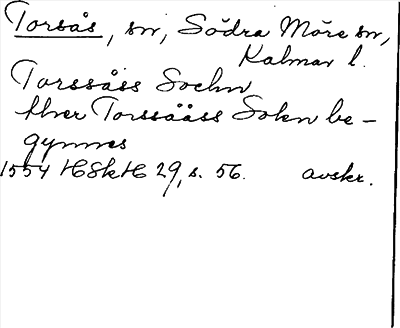 Torsås, sn, Södra Möre sn,
Kalmar l.
Torssåss Sochn
thner Torssååss Sokn be-
gynnes
1554 HSkH 29, s. 56. avskr.